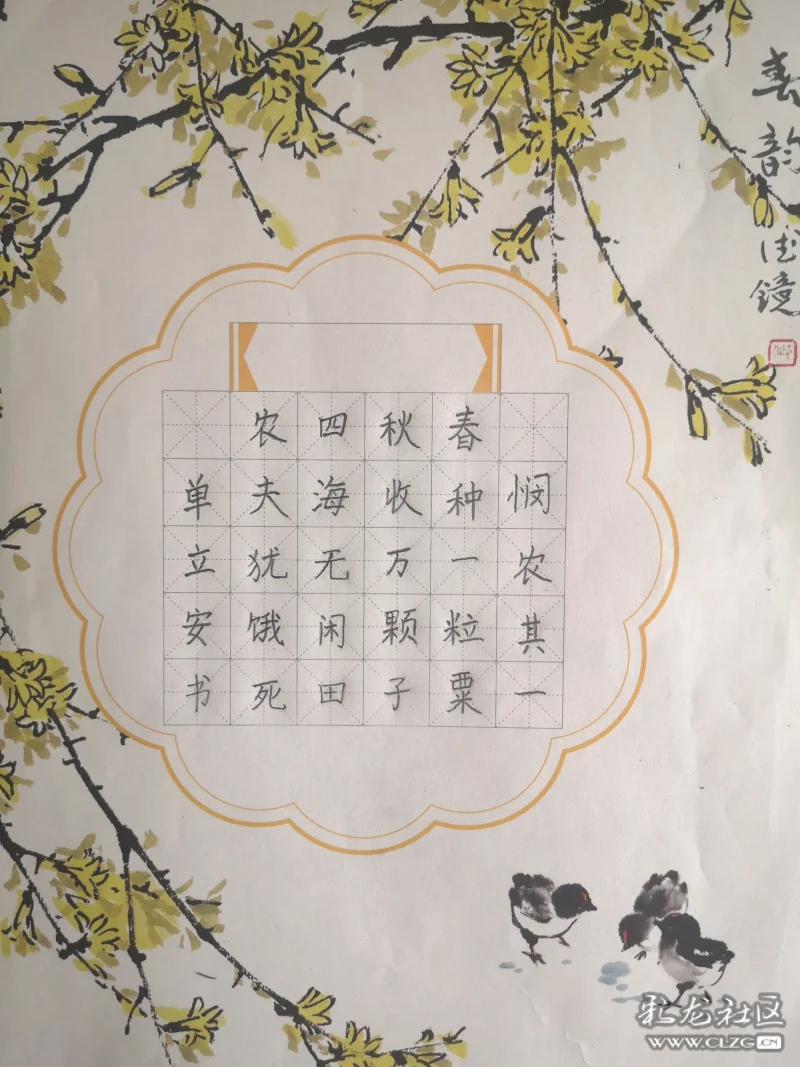 春韵
镜
悯农其一
春种一粒粟
秋收万颗子
四海无闲田
农夫犹饿死
单立安书
彩龙社区
WWW.CLZG.CN